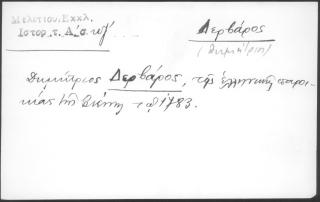 Μελετίου. Εκκλ.
Ιστορ. τ. Δ΄ σ.
Δερβάρος
(Δημήτριος)
Δημήτριος Δερβάρος, της ελληνικής παροι-
κίας της Βιέννης 1783.